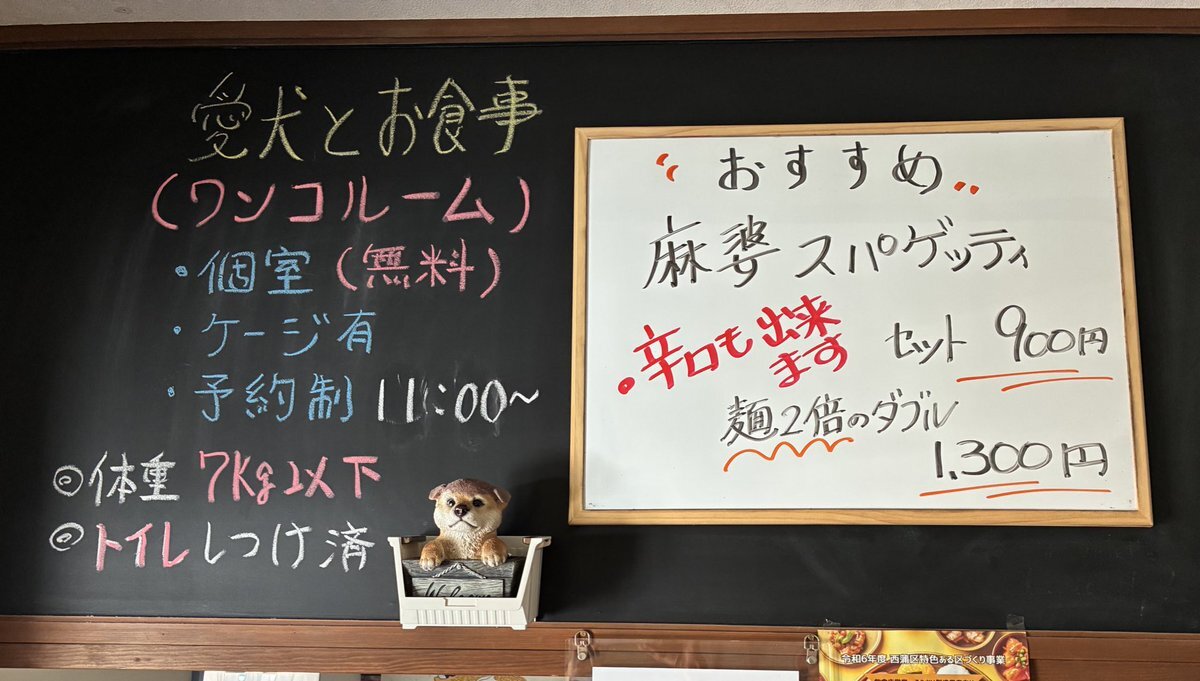 愛犬とお食事
(ワンコルーム)
・個室(無料)
・ケージ有
・予約制 11:00~
◎体重 7Kg以下
◎トイレしつけ済
Welcome
おすすめ
麻婆スパゲッティ
・辛口も出来
ます
セット 900円
麺2倍のダブル
1,300円
令和6年度 西蒲区特色ある区づくり事業